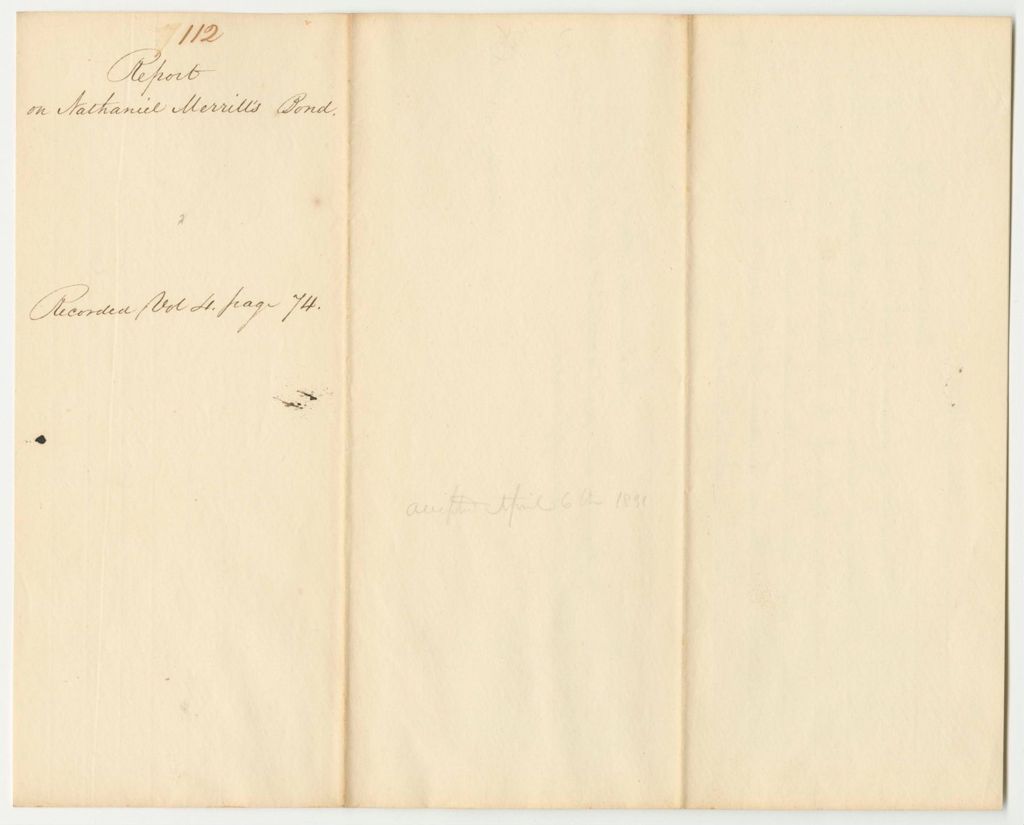 7112
Report
on Nathaniel Merrill's Bond.
Recorded Vol 4. page 74.
April 6th